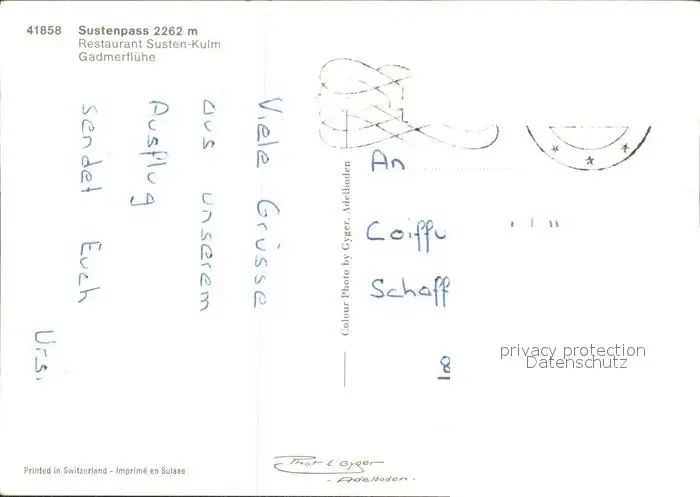 41858 Sustenpass 2262 m
Restaurant Susten-Kulm
Gadmerflühe
Viele Grüsse
aus unserem
Ausflug
sendet Euch
Urs.
Colour Photo by Gyger, Adelboden
An
Coiffu
Schaff
8
privacy protection
Datenschutz
Printed in Switzerland - Imprimé en Suisse
Phot E Gyger
- Adelboden.